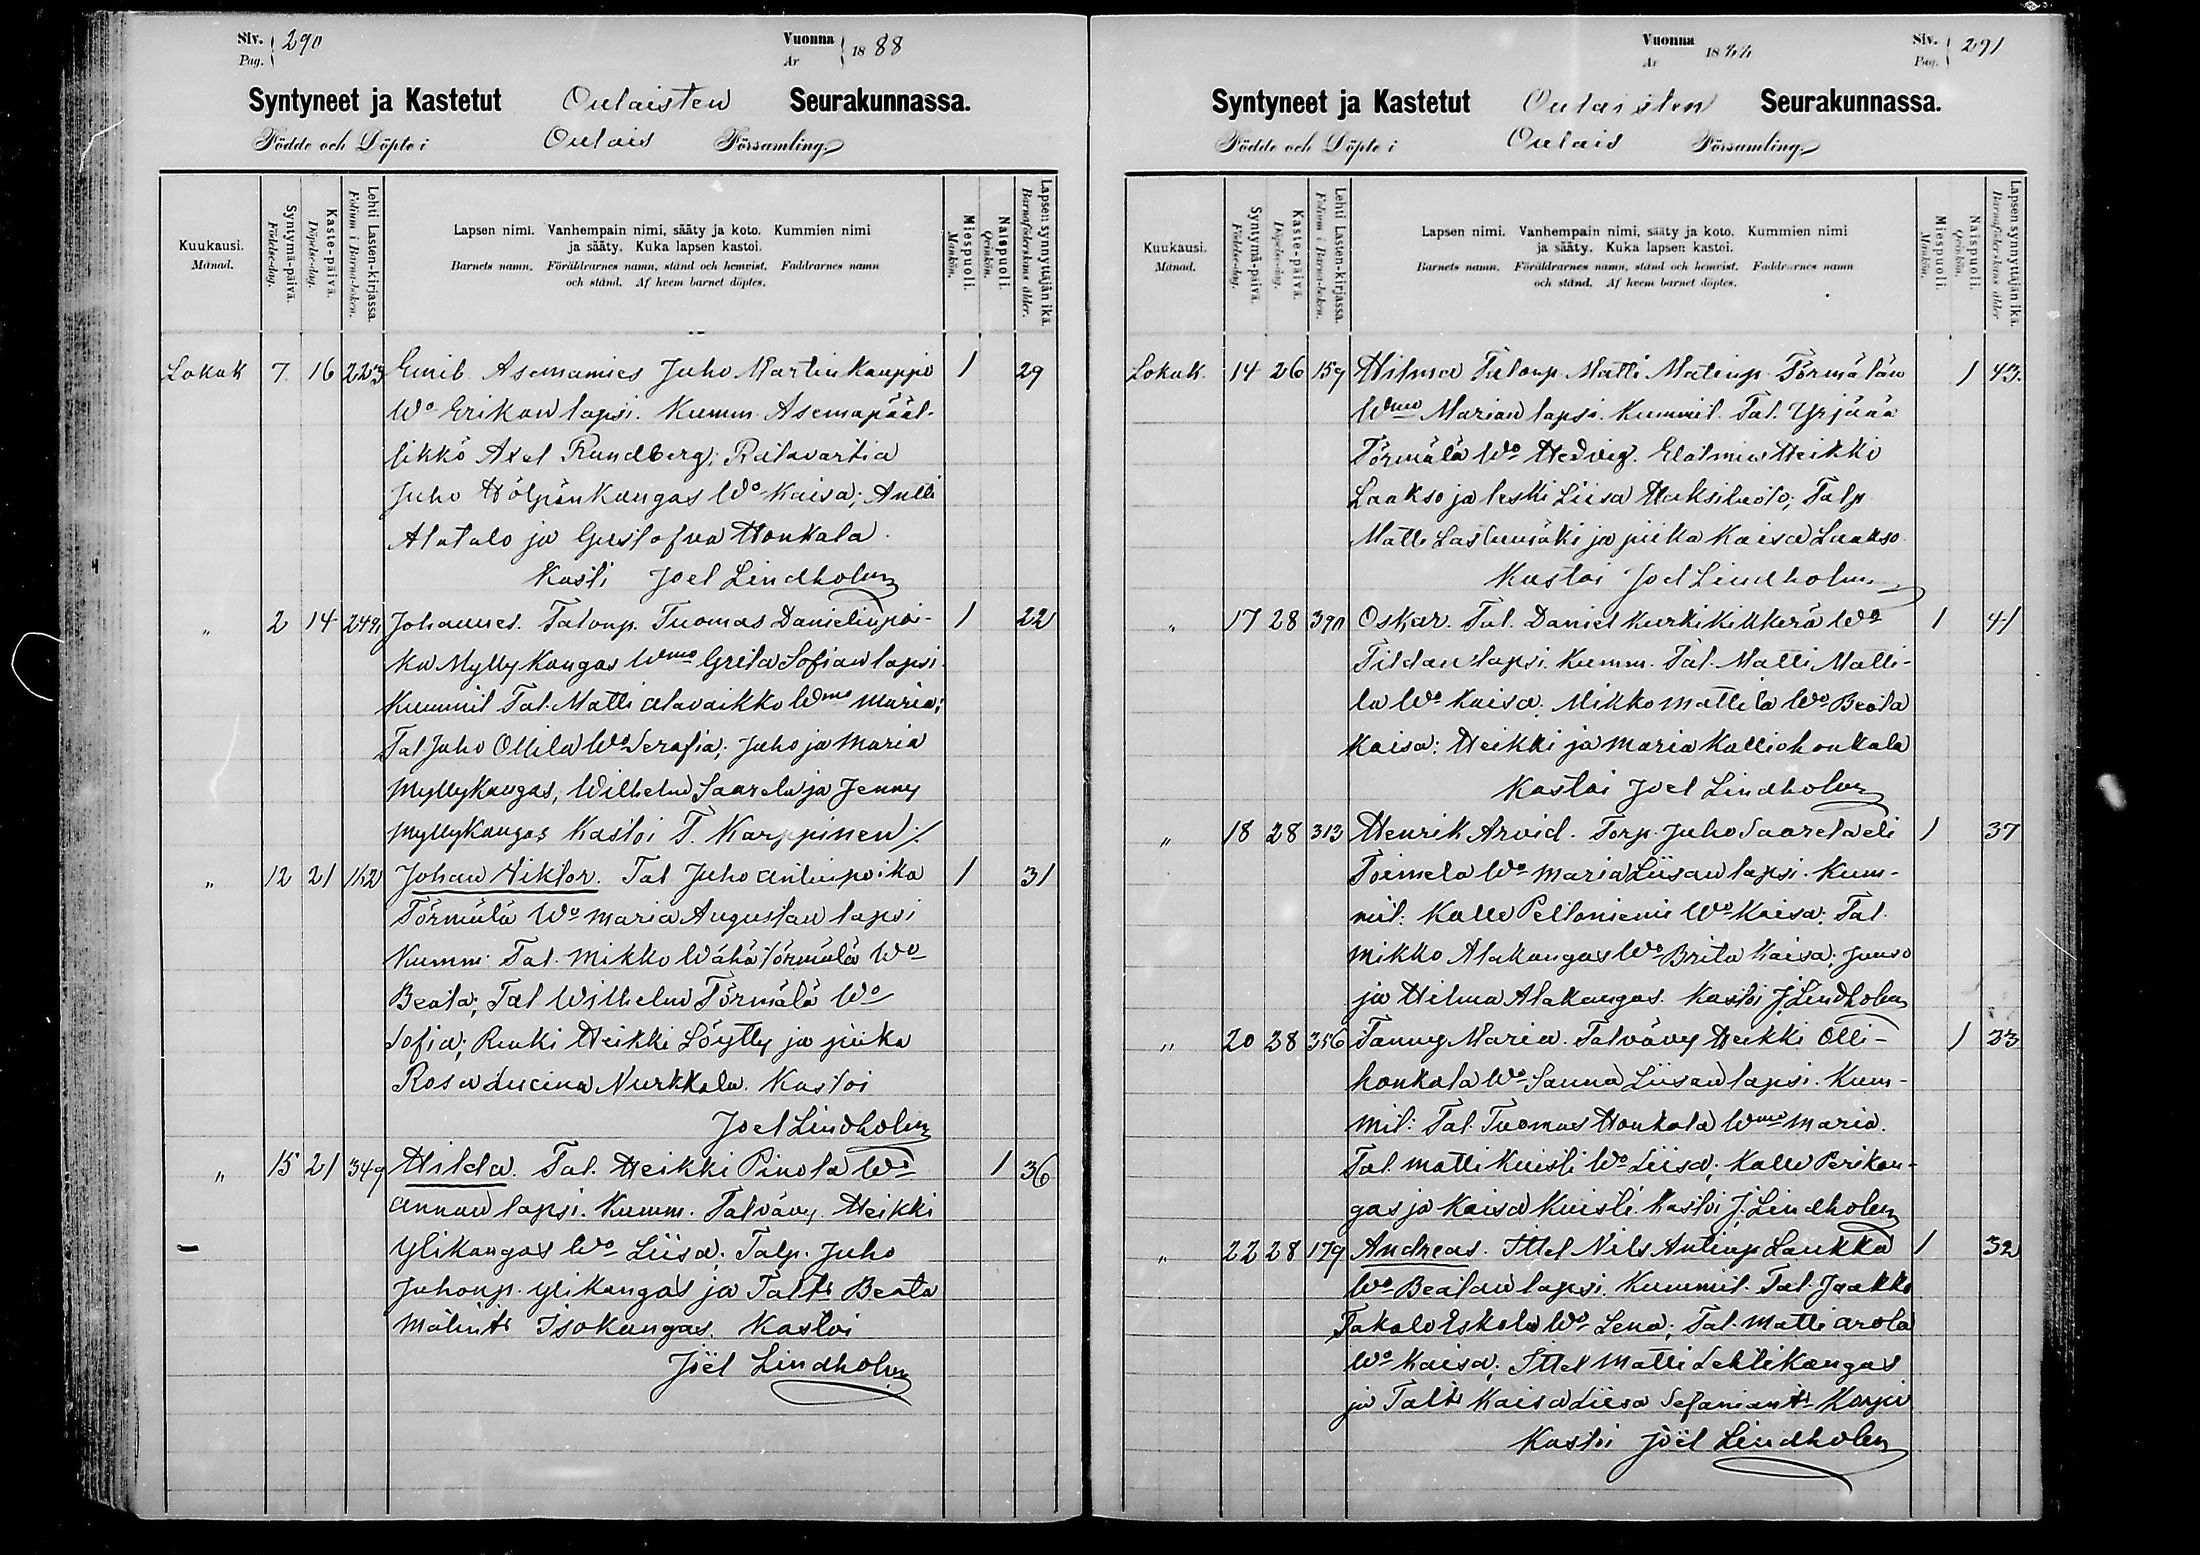 Siv. 290
Pag.
Vuonna 1888
År
Syntyneet ja Kastetut Oulaisten Seurakunnassa.
Födde och Döpte i Oulais Församling
Kuukausi.
Månad.
Syntymä-päivä.
Födelse-dag.
Kaste-päivä.
Döpelse-dag.
Lehti Lasten-kirjassa.
Folium i Barna-boken.
Lapsen nimi. Vanhempain nimi, sääty ja koto. Kummien nimi
ja sääty. Kuka lapsen kastoi.
Barnets namn. Föräldrarnes namn, stånd och hemvist. Faddrarnes namn
och stånd. Af hvem barnet döptes.
Miespuoli.
Mankön.
Naispuoli.
Qvinkön.
Lapsen synnyttäjän ikä.
Barnaföderskans ålder.
Lokak 7. 16 223 Emil Asemamies Juho Martin Kauppi 1 29
Wo Erikan lapsi. Kumm. Asemapääl-
likkö Axel Rundberg; Ratavartia
Juho Hölpänkangas Wo Kaisa; Antti
Alatalo ja Gustafva Honkala.
Kasti Joel Lindholm
" 2 14 249 Johannes. Talonp. Tuomas Danielinpoi- 1 22
ka Myllykangas Wmo Greta Sofian lapsi.
Kummit Tal. Matti Alavaikko Wmo Maria;
Tal. Juho Ollila Wo Serafia; Juho ja Maria
Myllykangas, Wilhelm Saarela ja Jenny
Myllykangas Kastoi T. Karppinen ./.
" 12 21 152 Johan Viktor. Tal Juho Antinpoika 1 31
Törmälä Wo Maria Augustan lapsi
Kumm. Tal. Mikko Wähätörmälä Wo
Beata; Tal Wilhelm Törmälä Wo
Sofia; Renki Heikki Löytty ja piika
Rosa Lucina Nurkkala. Kastoi
Joel Lindholm
" 15 21 349 Hilda. Tal. Heikki Pinola Wo 1 36
Annan lapsi. Kumm. Talvävy. Heikki
Ylikangas Wo Liisa; Talp. Juho
Juhonp. Ylikangas ja Taltr Beata
Isokangas. Kastoi
Joël Lindholm
Vuonna 1888
År
Siv. 291
Pag.
Syntyneet ja Kastetut Oulaisten Seurakunnassa.
Födde och Döpte i Oulais Församling
Kuukausi.
Månad.
Syntymä-päivä.
Födelse-dag.
Kaste-päivä.
Döpelse-dag.
Lehti Lasten-kirjassa.
Folium i Barna-boken.
Lapsen nimi. Vanhempain nimi, sääty ja koto. Kummien nimi
ja sääty. Kuka lapsen kastoi.
Barnets namn. Föräldrarnes namn, stånd och hemvist. Faddrarnes namn
och stånd. Af hvem barnet döptes.
Miespuoli.
Mankön.
Naispuoli.
Qvinkön.
Lapsen synnyttäjän ikä.
Barnaföderskans ålder
Lokak. 14 26 159 Hilma Talonp. Matti Matinp. Törmälän 1 43.
Wmo Marian lapsi. Kummit. Tal. Yrjänä
Törmälä Wo Hedvig. Elatmies Heikki
Laakso ja leski Liisa Haksiluoto; Talp
Matti Lastumäki ja piika Kaisa Laakso.
Kastoi Joel Lindholm
" 17 28 390 Oskar. Tal. Daniel Kurkikiukerä Wo 1 41
Tildan lapsi. Kumm. Tal. Matti Matti-
la Wo Kaisa; Mikko Mattila Wo Beata
Kaisa; Heikki ja Maria Kalliohonkala
Kastoi Joel Lindholm
" 18 28 313 Henrik Arvid. Torp. Juho Saarela eli 1 37
Toimela Wo Maria Liisan lapsi. Kum-
mit: Kalle Peltoniemi Wo Kaisa; Tal.
Mikko Alakangas Wo Brita Kaisa; Juuso
ja Hilma Alakangas. Kastoi J. Lindholm
" 20 28 356 Fanny Maria. Talvävy Heikki Olli- 1 23
honkala Wo Sanna Liisan lapsi. Kum-
mit: Tal. Tuomas Honkala Wmo Maria.
Tal. Matti Kuisti Wo Liisa; Kalle Perikan-
gas ja Kaisa Kuisti. Kastoi J. Lindholm
" 22 28 179 Andreas. Ittel Nils Antinp Laukka 1 32
Wo Beatan lapsi. Kummit. Tal. Jaakko
Takalo Eskola Wo Lena; Tal. Matti Arola
Wo Kaisa; Ittel Matti Lehtikangas
ja Taltr Kaisa Liisa Korpi
Kastoi Joël Lindholm